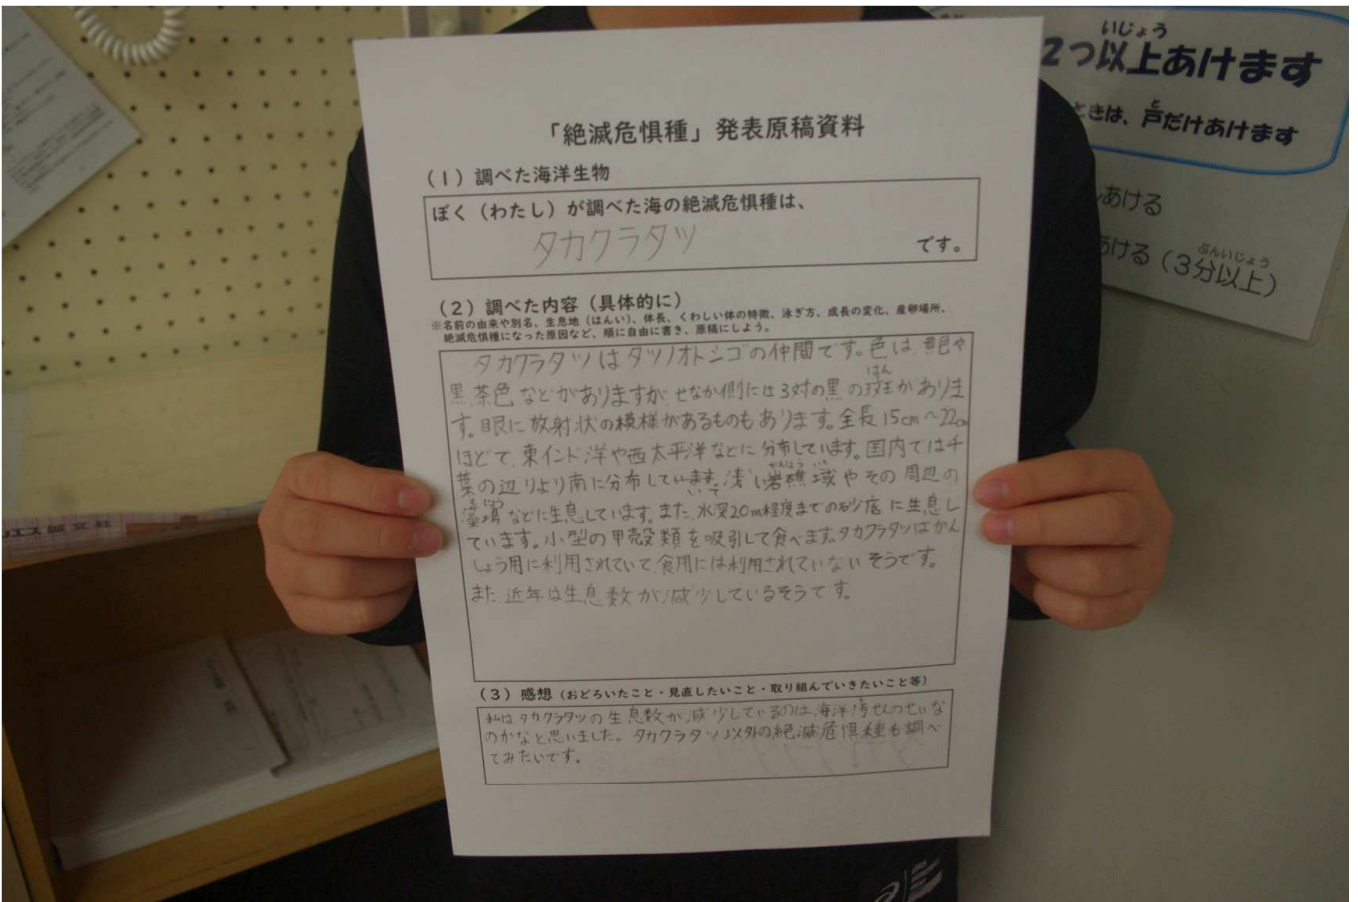 いじょう
2つ以上あけます
ときは、戸だけあけます
と
あける
あける（3分以上）
ぷんいじょう
「絶滅危惧種」発表原稿資料
（1）調べた海洋生物
ぼく（わたし）が調べた海の絶滅危惧種は、
タカクラタツ
です。
（2）調べた内容（具体的に）
※名前の由来や別名、生息地（はんい）、体長、くわしい体の特徴、泳ぎ方、成長の変化、産卵場所、
絶滅危惧種になった原因など、順に自由に書き、原稿にしよう。
タカクラタツはタツノオトシゴの仲間です。色は、や
はん
黒、茶色などがありますが、せなか側には3対の黒の斑がありま
す。眼に放射状の模様があるものもあります。全長15cm～22cm
ほどで、東インド洋や西太平洋などに分布しています。国内では千
葉の辺りより南に分布しています。浅い岩礁域やその周辺の
藻場などに生息しています。また、水深20m程度までの砂底に生息し
ています。小型の甲殻類を吸引して食べます。タカクラタツはかん
しょう用に利用されていて、食用には利用されていないそうです。
また、近年は生息数が減少しているそうです。
（3）感想（おどろいたこと・見直したいこと・取り組んでいきたいこと等）
私は、タカクラタツの生息数が減少しているのは、海洋汚せんのせいな
のかなと思いました。タカクラタツ以外の絶滅危惧種も調べ
てみたいです。